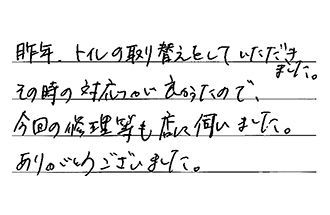 昨年、トイレの取り替えをしていただきました。
その時の対応がよかったので、
今回の修理等も店に伺いました。
ありがとうございました。